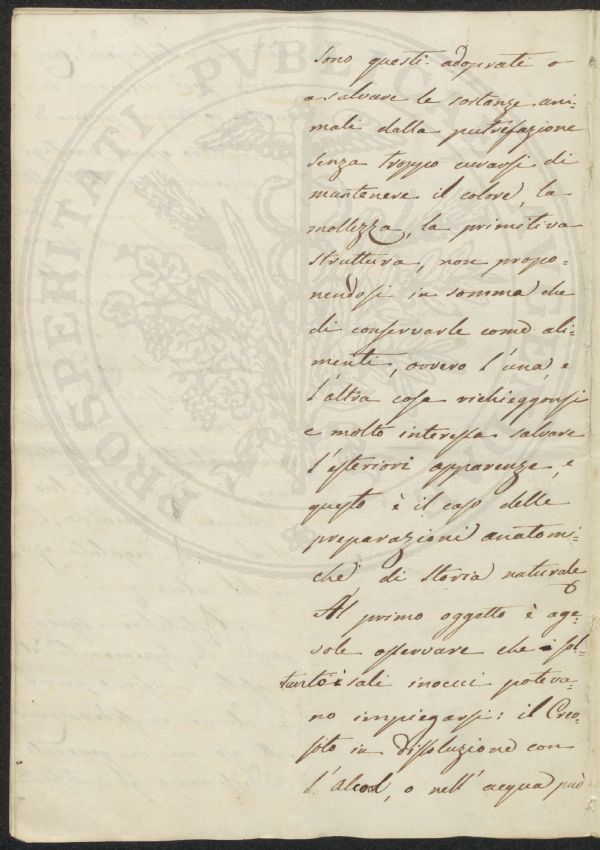 PROSPERITATI PUBLICAE
sono questi adoprati o
a salvare le sostanze ani=
mali dalla putrefazione
senza troppo curarsi di
mantenere il colore, la
mollezza, la primitiva
struttura, non propo=
nendosi in somma che
di conservarle come ali=
menti, ovvero l'una, e
l'altra cosa richieggonsi
e molto interessa salvare
l'esteriori apparenze, e
questo è il caso delle
preparazioni anatomi=
che di storia naturale
Al primo oggetto è age=
vole osservare che i sol=
tanto i sali inocui poteva=
no impiegarsi: il Creo=
soto in dissoluzione con
l'alcool, o nell'acqua può